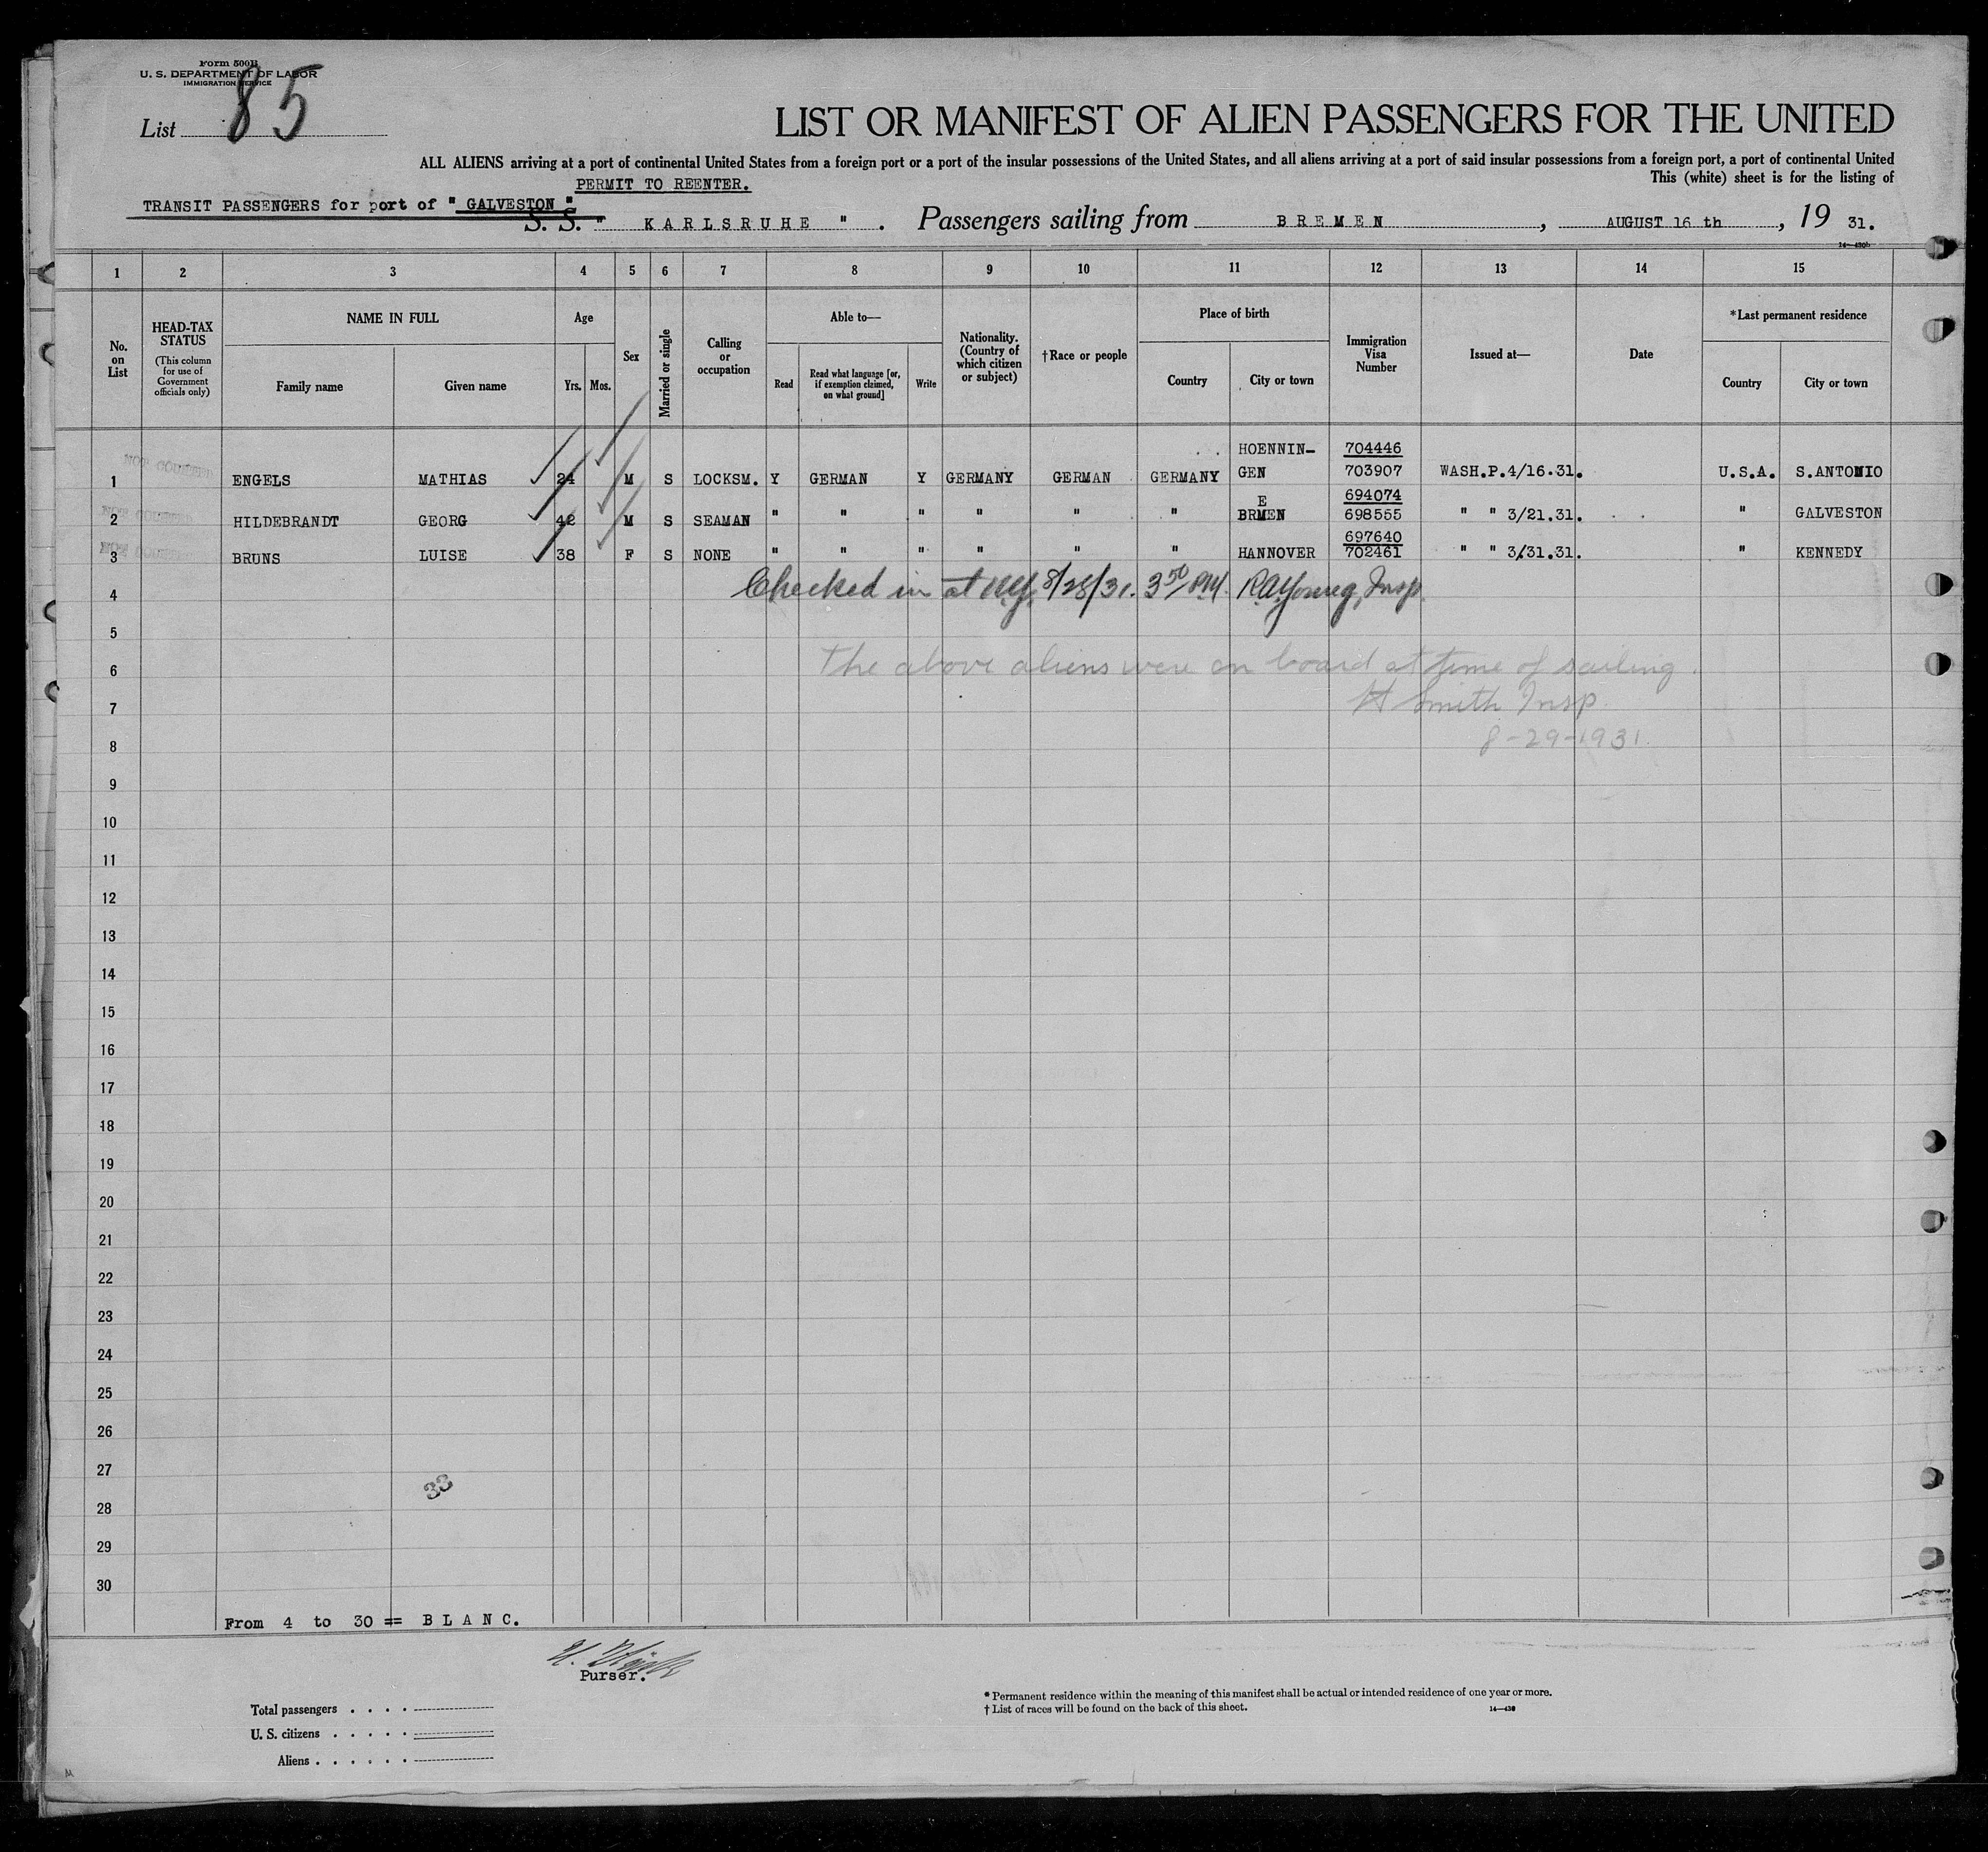 Form 500B
U. S. DEPARTMENT OF LABOR
IMMIGRATION SERVICE
List 85
LIST OR MANIFEST OF ALIEN PASSENGERS FOR THE UNITED
ALL ALIENS arriving at a port of continental United States from a foreign port or a port of the insular possessions of the United States, and all aliens arriving at a port of said insular possessions from a foreign port, a port of continental United
PERMIT TO REENTER.
This (white) sheet is for the listing of
TRANSIT PASSENGERS for port of " GALVESTON "
S. S. " KARLSRUHE " . Passengers sailing from BREMEN , AUGUST 16 th , 19 31.
14—430b
1 2 3 4 5 6 7 8 9 10 11 12 13 14 15
No. on List
HEAD-TAX STATUS
(This column for use of Government officials only)
NAME IN FULL
Family name Given name
Age
Yrs. Mos.
Sex
Married or single
Calling or occupation
Able to—
Read
Read what language [or, if exemption claimed, on what ground]
Write
Nationality. (Country of which citizen or subject)
†Race or people
Place of birth
Country City or town
Immigration Visa Number
Issued at—
Date
*Last permanent residence
Country City or town
HOENNIN- 704446
1 NOT COUNTED ENGELS MATHIAS 24 M S LOCKSM. Y GERMAN Y GERMANY GERMAN GERMANY GEN 703907 WASH.P.4/16.31. U.S.A. S.ANTONIO
E 694074
2 HILDEBRANDT GEORG 42 M S SEAMAN " " " " " " BRMEN 698555 " " 3/21.31. " GALVESTON
697640
3 BRUNS LUISE 38 F S NONE " " " " " " HANNOVER 702461 " " 3/31.31. " KENNEDY
4 Checked in at NY. 8/28/31. 3 50 PM. R.A.Young, Insp.
5
6 The above aliens were on board at time of sailing.
7 H Smith Insp.
8 8-29-1931.
9
10
11
12
13
14
15
16
17
18
19
20
21
22
23
24
25
26
27
33
28
29
30
From 4 to 30 == BLANC.
Purser.
Total passengers . . . .
U. S. citizens . . . . .
Aliens . . . . . .
* Permanent residence within the meaning of this manifest shall be actual or intended residence of one year or more.
† List of races will be found on the back of this sheet.
14—430